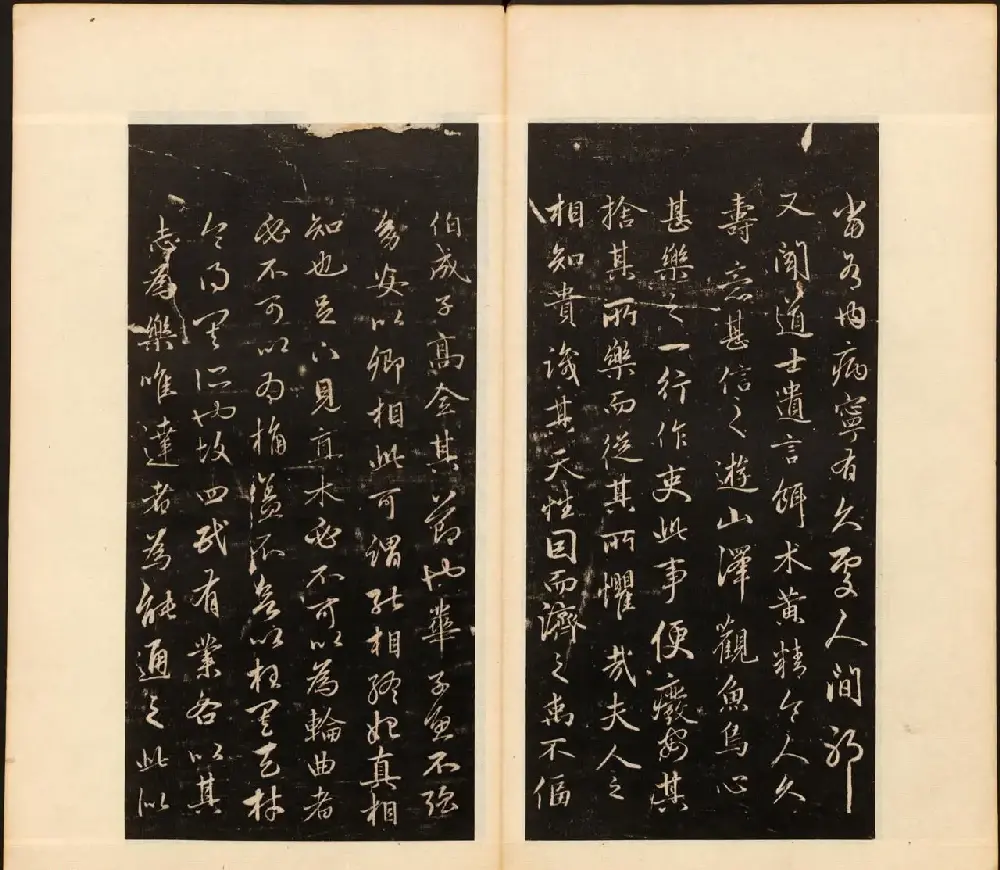 當多内病寧有久處人間邪
又聞道士遺言餌术黃精令人久
壽意甚信之遊山澤觀魚鳥心
甚樂之一行作吏此事便癈安其
捨其所樂而從其所懼哉夫人之
相知貴識其天性因而濟之禹不偪
伯成子高全其節也華子魚不强
幼安以卿相此可謂能相終始真相
知也足下見直木必不可以為輪曲者
必不可以為桷蓋不欲以枉其天材
令得其所也故四民有業各以其
志為樂唯達者為能通之此似